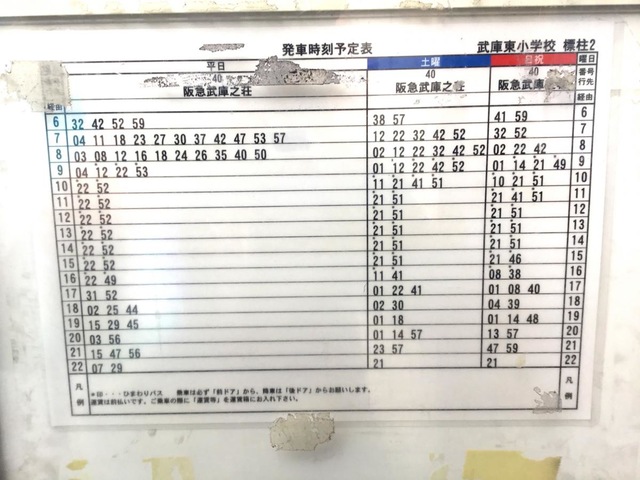 発車時刻予定表 武庫東小学校 標柱2
平日 土曜 日祝 曜日
40 40 40 番号
阪急武庫之荘 阪急武庫之荘 阪急武庫之 行先
経由 経由
6 32 42 52 59 38 57 41 59 6
7 04 11 18 23 27 30 37 42 47 53 57 12 22 32 42 52 32 52 7
8 03 08 12 16 18 24 26 35 40 50 02 12 22 32 42 52 02 22 42 8
9 04 12 22 53 01 12 22 42 52 01 14 21 49 9
10 22 52 11 21 41 51 10 21 51 10
11 22 52 21 51 21 41 51 11
12 22 52 21 51 21 51 12
13 22 52 21 51 21 51 13
14 22 52 21 51 21 51 14
15 22 52 21 51 21 46 15
16 22 49 11 41 08 38 16
17 31 52 01 22 41 01 08 40 17
18 02 25 44 02 30 04 39 18
19 15 29 45 01 18 01 14 48 19
20 03 56 01 14 57 13 57 20
21 15 47 56 23 57 47 59 21
22 07 29 21 21 22
凡例 *印・・・ひまわりバス 乗車は必ず「前ドア」から、降車は「後ドア」からお願いします。 凡例
運賃は前払いです。ご乗車の際に「運賃等」を運賃箱にお入れ下さい。